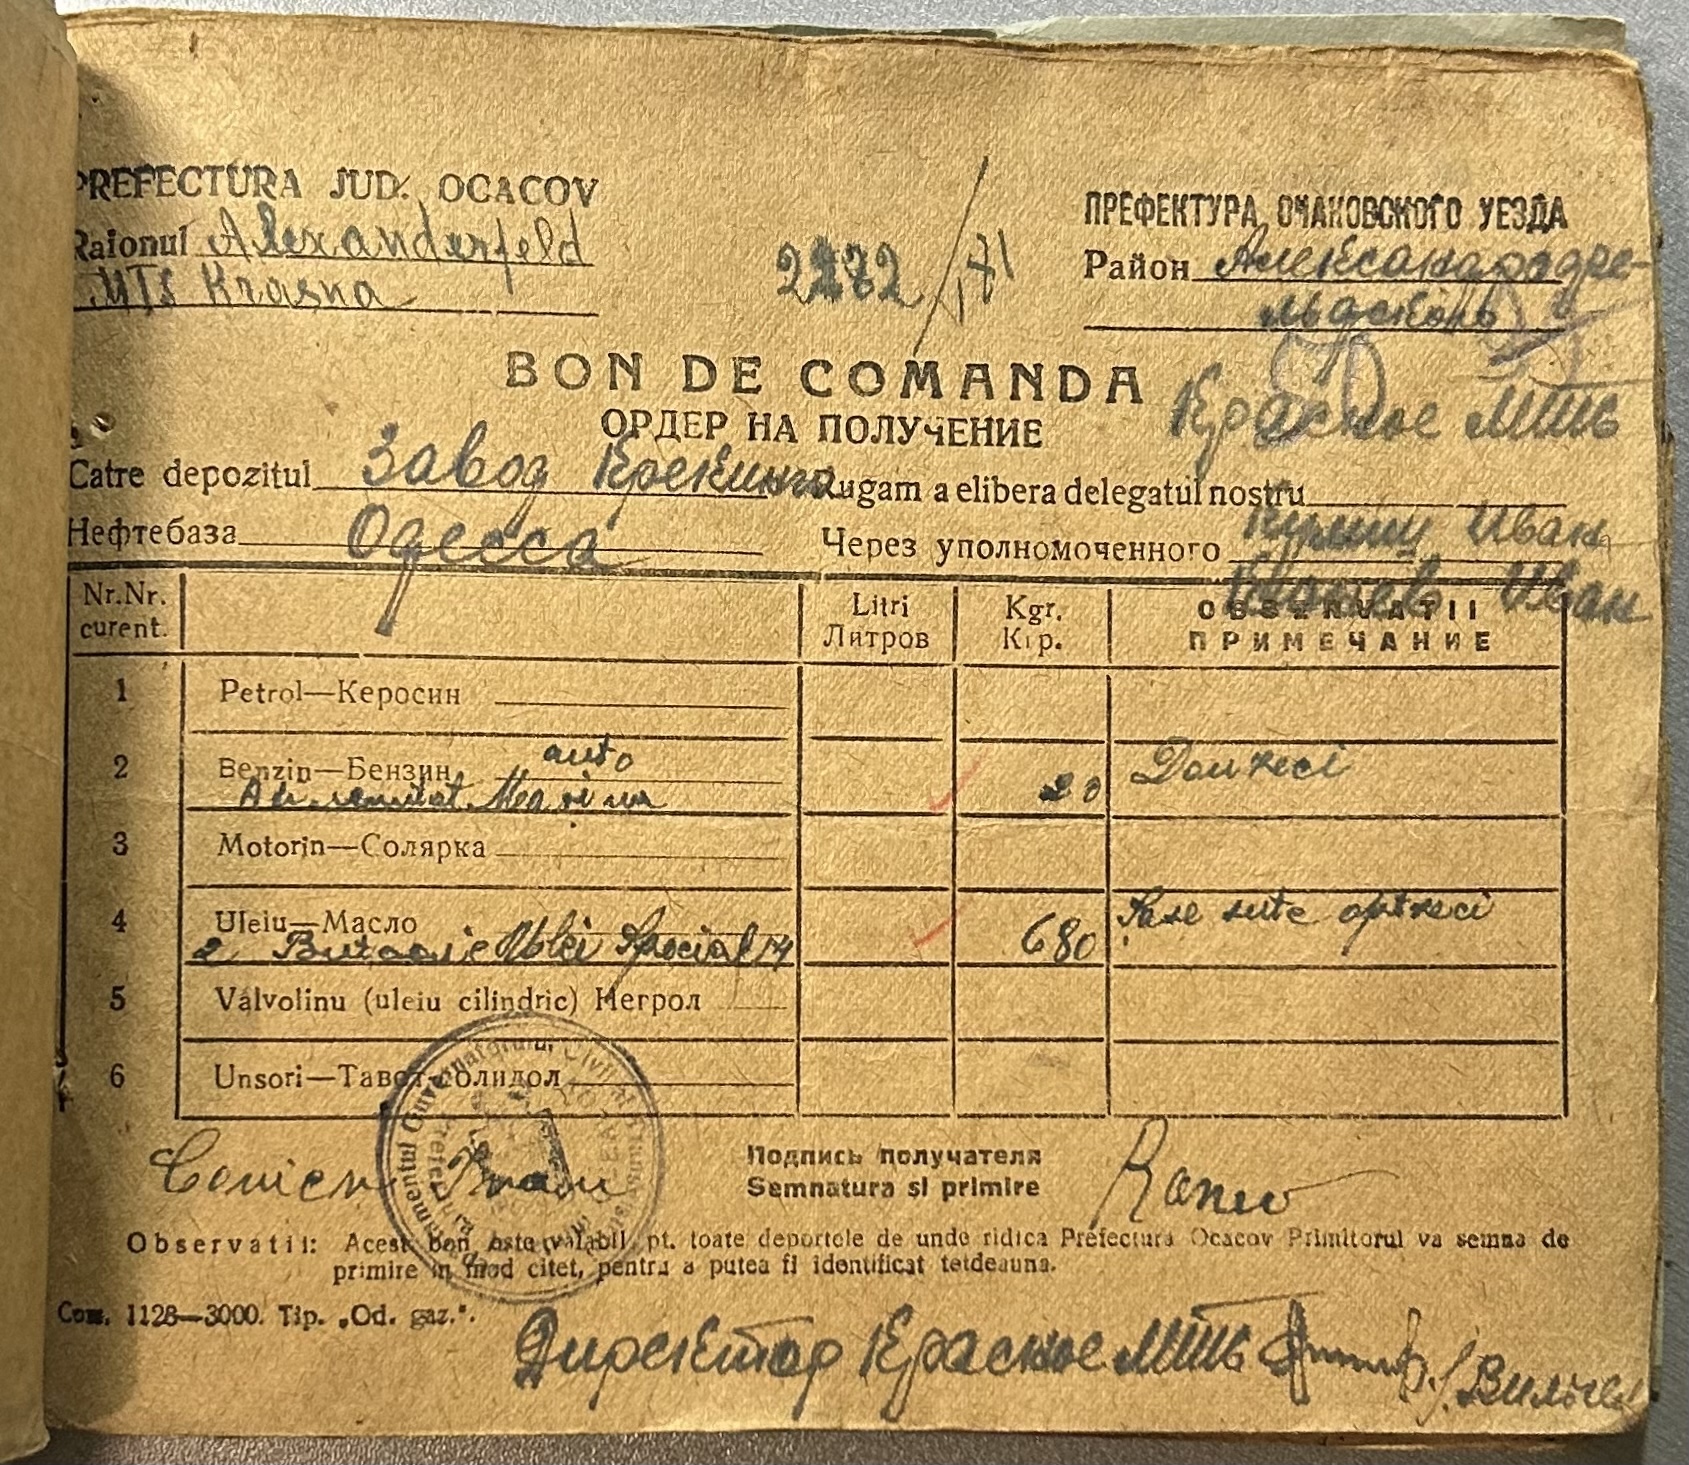 PREFECTURA JUD. OCACOV
Raionul Alexanderfeld
MTS Krasna
2272
ПРЕФЕКТУРА ОЧАКОВСКОГО УЕЗДА
Район Александрфе-
льдский
BON DE COMANDA
ОРДЕР НА ПОЛУЧЕНИЕ
Красное МТС
Catre depozitul Завод Крекинга Rugam a elibera delegatul nostru
Нефтебаза Одесса Через уполномоченного Иван
Иван
Nr.Nr. curent. Litri Литров Kgr. Кгр. OBSERVATII ПРИМЕЧАНИЕ
1 Petrol—Керосин
2 Benzin—Бензин auto 20 Douzeci
3 Motorin—Солярка
4 Uleiu—Масло 680 Sase sute optzeci
2 Butoaie Ulei Special
5 Valvolinu (uleiu cilindric) Негрол
6 Unsori—Тавот-солидол
Подпись получателя
Semnatura si primire
Observatii: Acest bon este valabil pt. toate deportele de unde ridica Prefectura Ocacov Primitorul va semna de
primire in mod citet, pentru a putea fi identificat totdeauna.
Com. 1128—3000. Tip. „Od. gaz.".
Директор Красное МТС